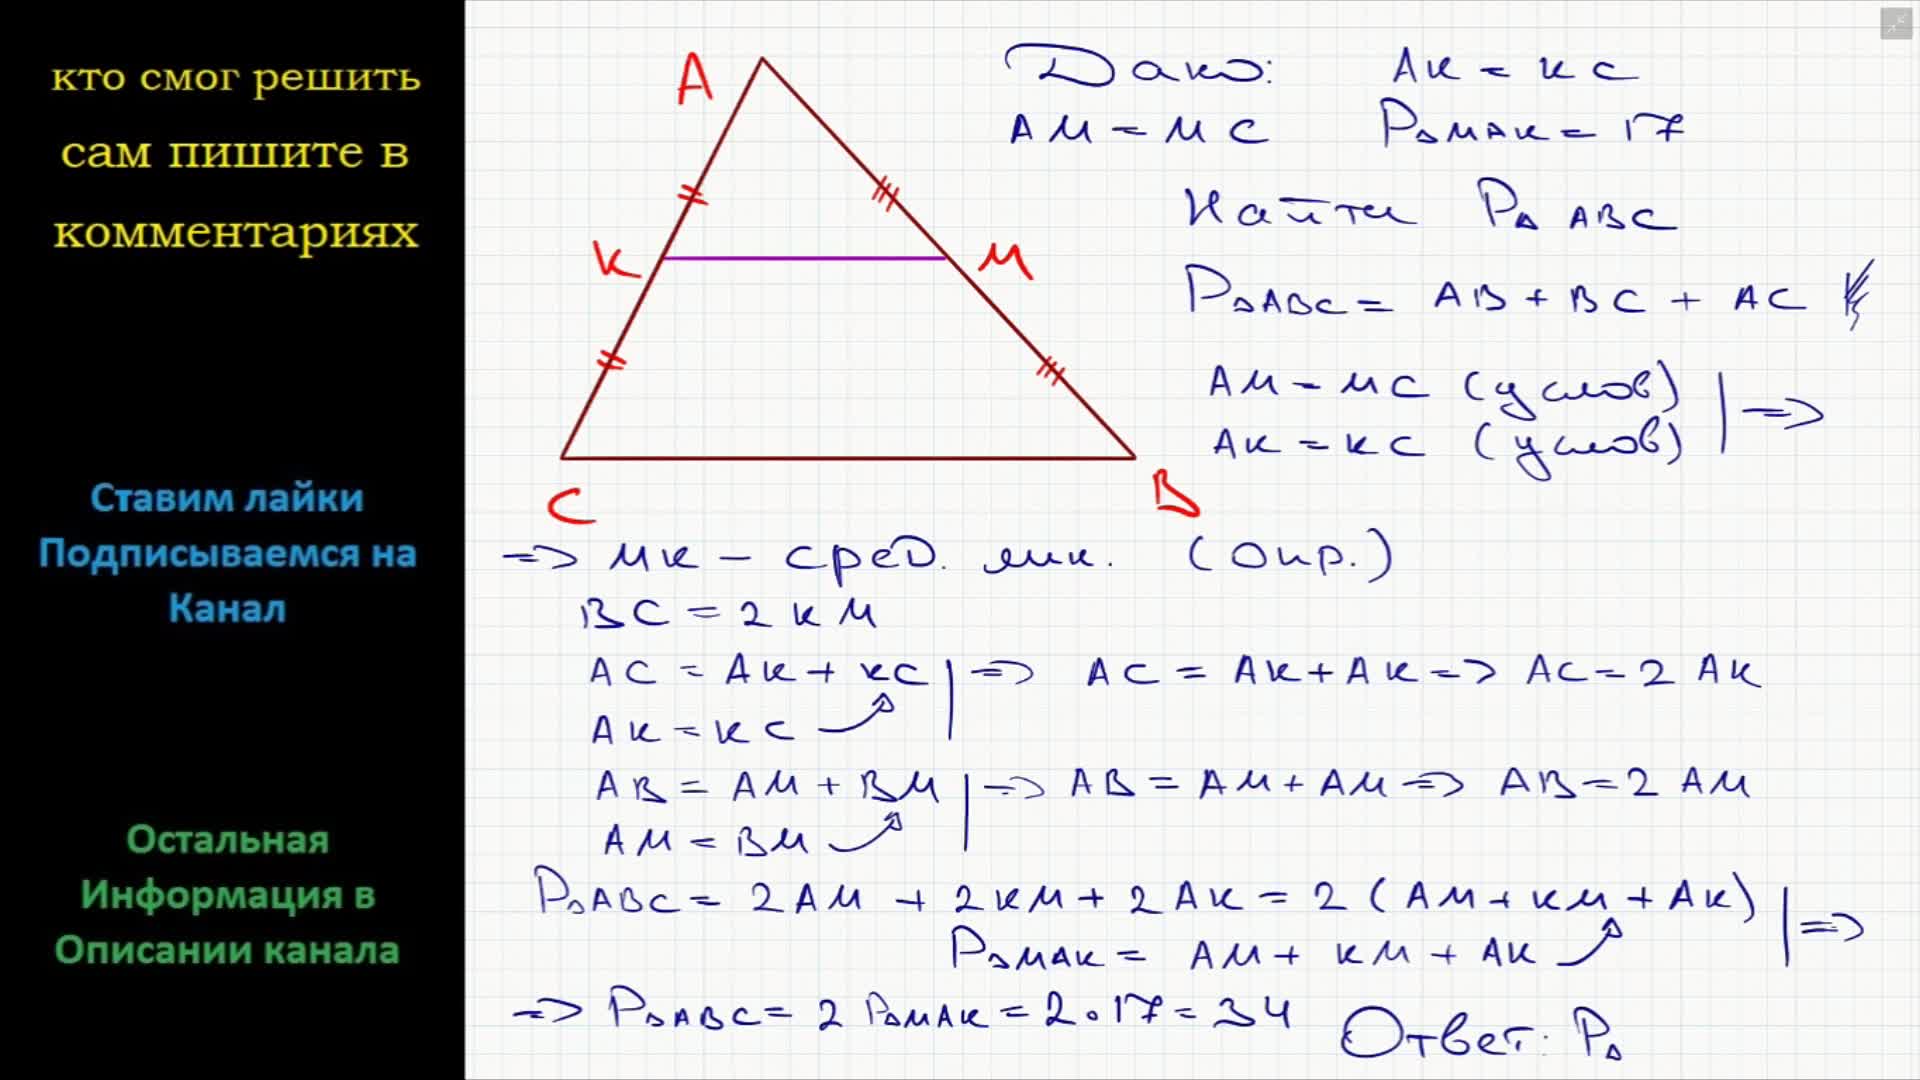 кто смог решить
сам пишите в
комментариях
Ставим лайки
Подписываемся на
Канал
Остальная
Информация в
Описании канала
A
K
M
C
B
Дано: AK = KC
AM = MC P△MAK = 17
Найти P△ABC
P△ABC = AB + BC + AC
AM = MC (услов)
AK = KC (услов) | =>
=> MK – сред. лин. (Опр.)
BC = 2 KM
AC = AK + KC | => AC = AK + AK => AC = 2 AK
AK = KC
AB = AM + BM | => AB = AM + AM => AB = 2 AM
AM = BM
P△ABC = 2 AM + 2 KM + 2 AK = 2 (AM + KM + AK) | =>
P△MAK = AM + KM + AK
=> P△ABC = 2 P△MAK = 2 · 17 = 34 Ответ: P△